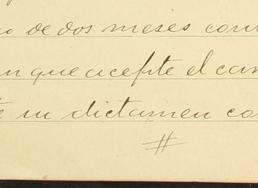 o de dos meses con
n que acepte el car
e su dictamen co